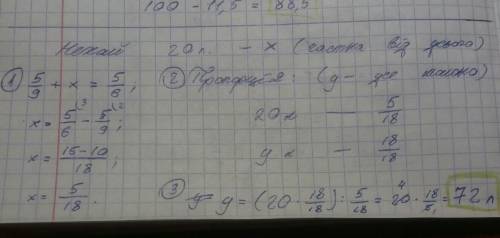 100 - 11,5 = 88,5
Нехай 20 л. - x (частка від усього)
① 5/9 + x = 5/6;
x = 5/6 - 5/9;
x = (15-10)/18;
x = 5/18.
② Пропорція: (y - все молоко)
20 л — 5/18
y л — 18/18
③ y = (20 · 18/18) : 5/18 = 20 · 18/5 = 72 л